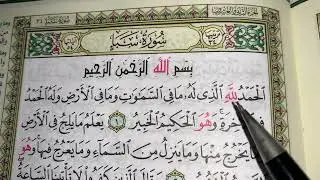 سُورَةُ سَبَإٍ
بِسْمِ اللّٰهِ الرَّحْمٰنِ الرَّحِيمِ
اَلْحَمْدُ لِلّٰهِ الَّذِى لَهُ مَا فِى السَّمٰوَاتِ وَمَا فِى الْاَرْضِ وَلَهُ الْحَمْدُ
فِى الْاٰخِرَةِ وَهُوَ الْحَكِيمُ الْخَبِيرُ ١ يَعْلَمُ مَا يَلِجُ فِى
وَمَا يَخْرُجُ مِنْهَا وَمَا يَنْزِلُ مِنَ السَّمَاءِ وَمَا يَعْرُجُ فِيهَا وَهُوَ